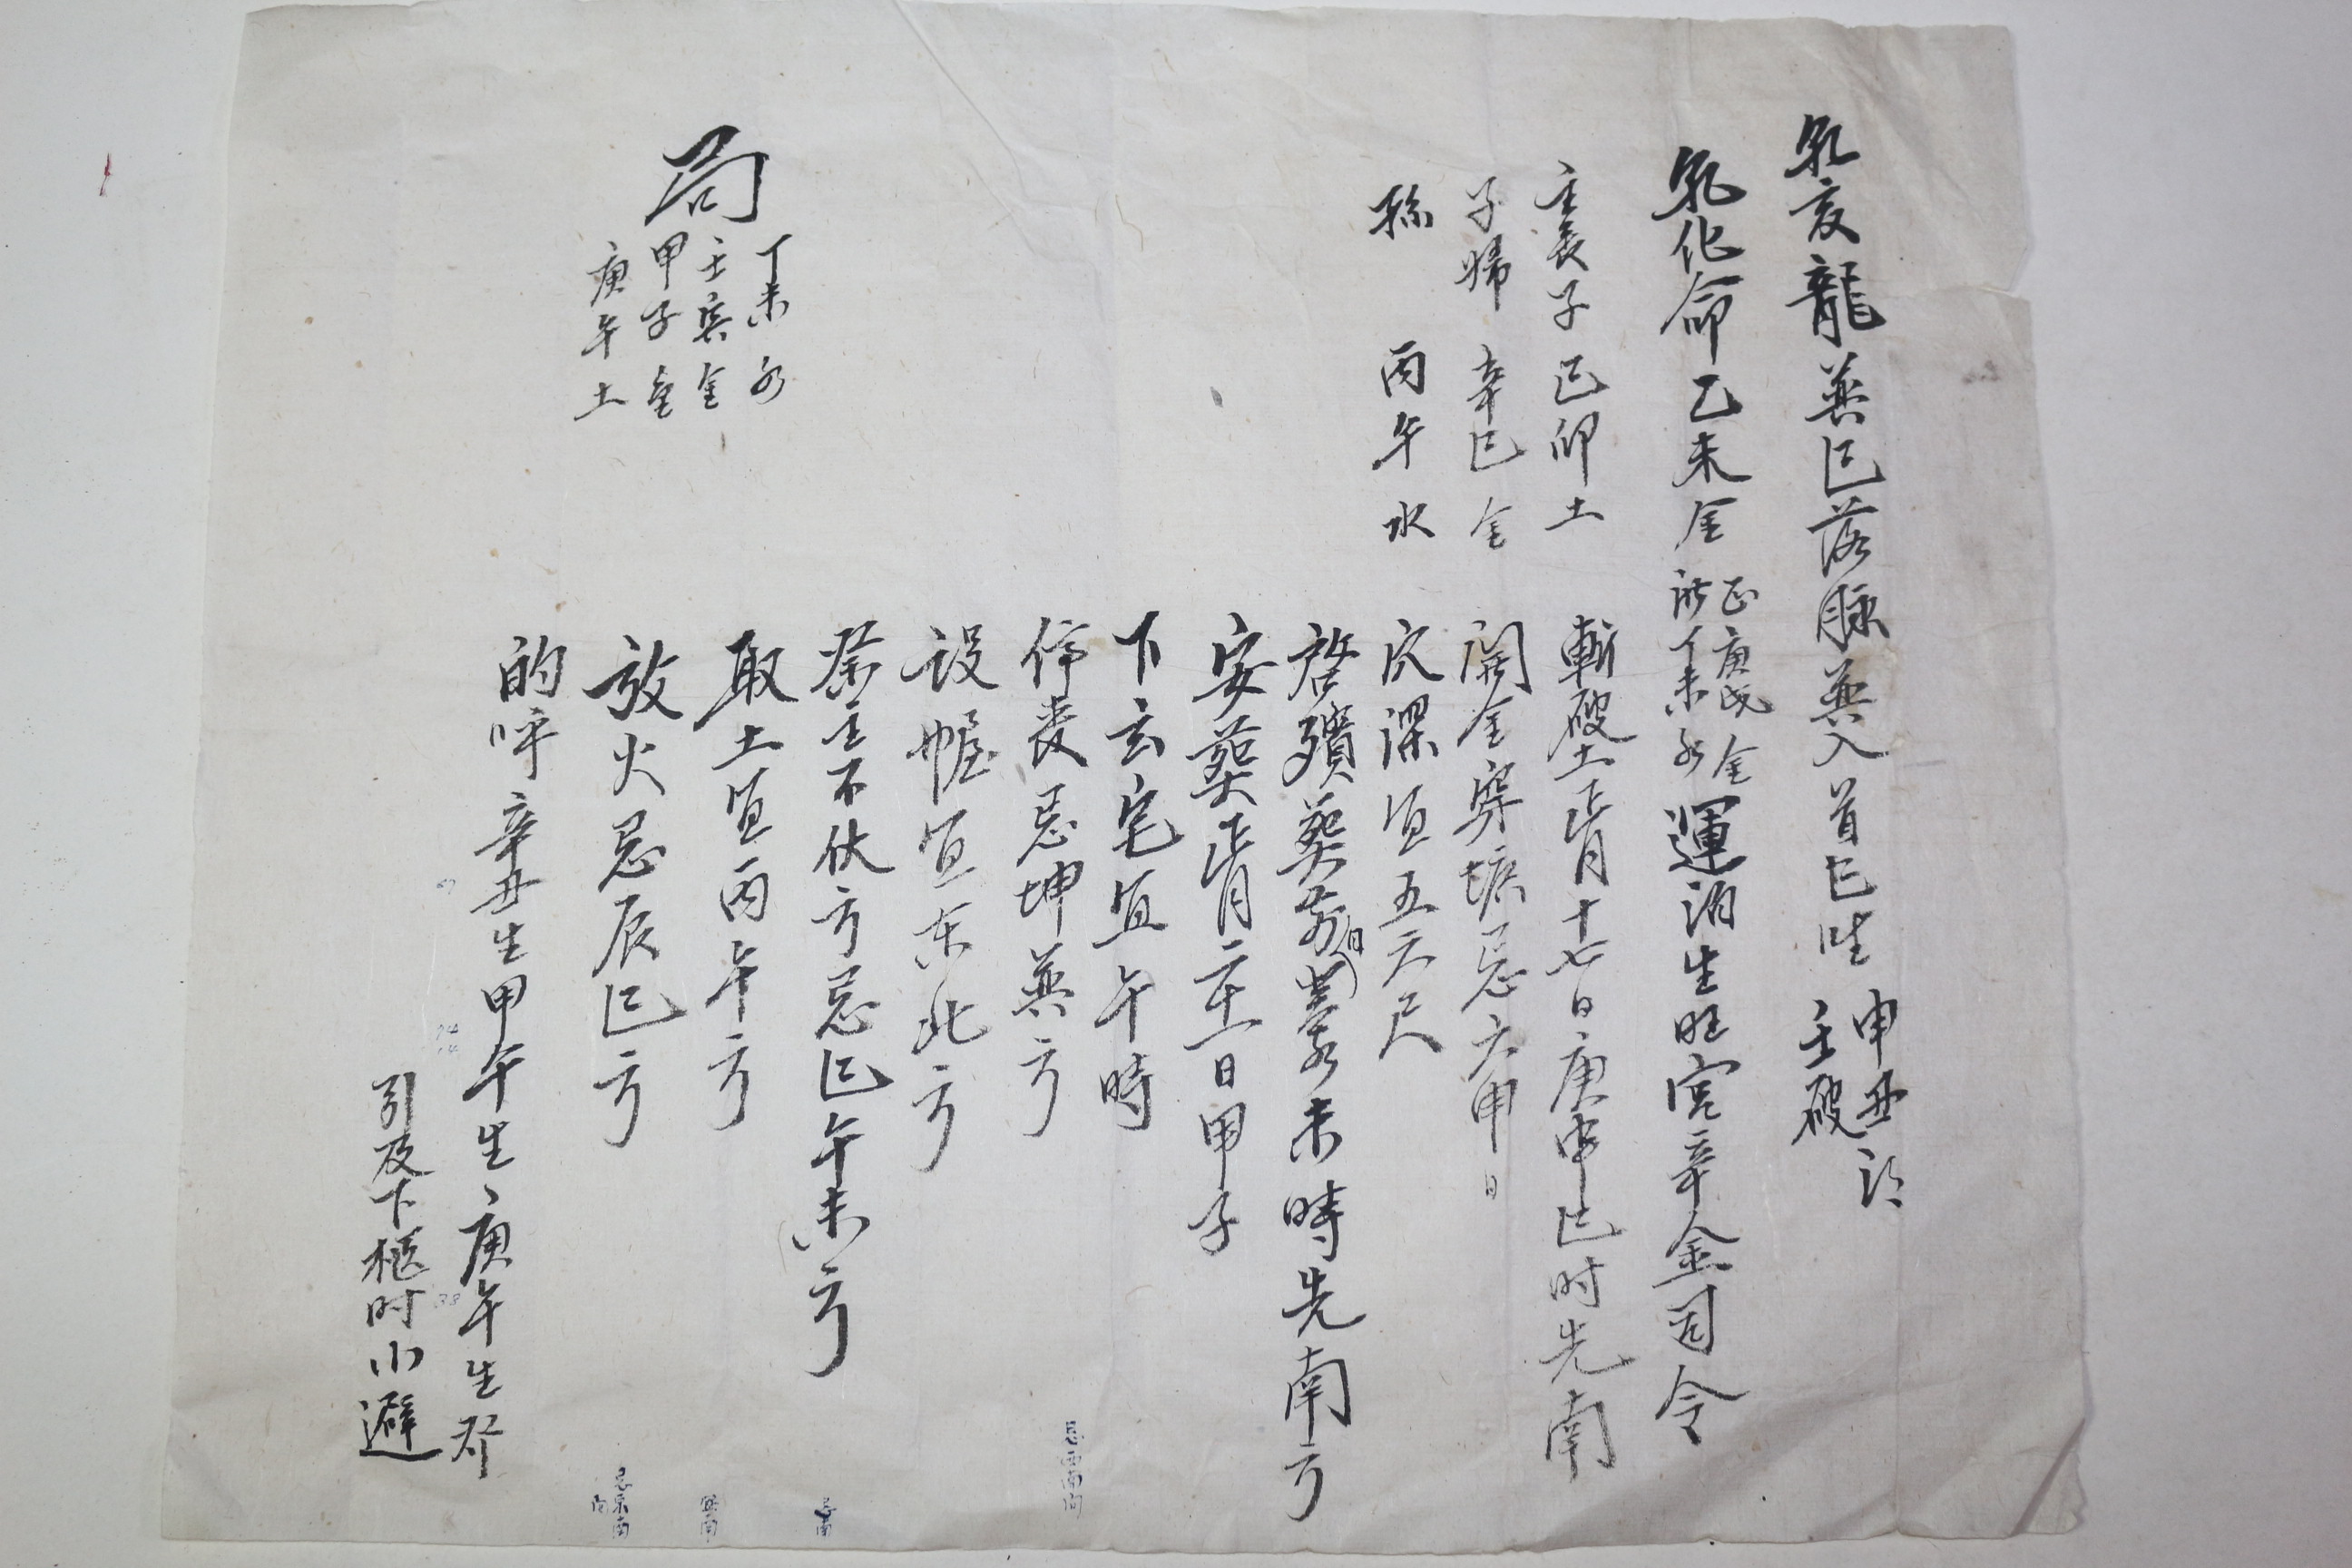 乾亥龍巽巳落脉巽入首巳坐
申丑得
壬破
乾化命乙未金
正庚戌金
丁未水
運泊生旺宮辛金司令
主喪子己卯土
子婦辛巳金
孫丙午水
斬破土正月十七日庚申巳时先南
開金穽壙忌六甲日
穴深宜五六尺
啓殯葬前日未時先南方
安葬正月二十一日甲子
下玄宅宜午時
停喪忌坤巽方
設幄宜东北方
祭主不伏方忌巳午未方
取土宜丙午方
放火忌辰巳方
的呼辛丑生甲午生庚午生
引及下柩时小避
局
丁未水
壬寅金
甲子金
庚午土
忌西南向
忌南
忌东南向